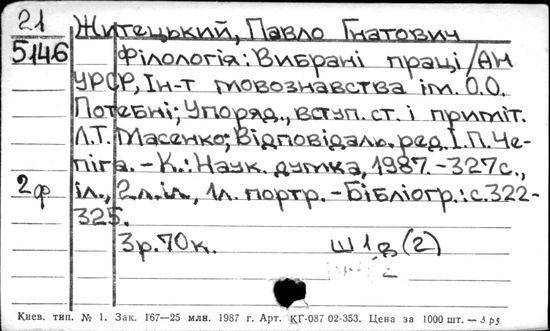 21
5146
Житецький, Павло Гнатович
Філологія: Вибрані праці / АН
УРСР, Ін-т мовознавства ім. О.О.
Потебні; Упоряд., вступ. ст. і приміт.
Л.Т. Масенко; Відповідаль. ред. І.П. Че-
піга. – К.: Наук. думка, 1987. – 327с.,
2ф іл., 2л. іл., 1л. портр. – Бібліогр.: с. 322-
325.
3р. 70к. Ш1в(2)
Киев. тип. № 1. Зак. 167—25 млн. 1987 г. Арт. КГ-087 02-353. Цена за 1000 шт. —